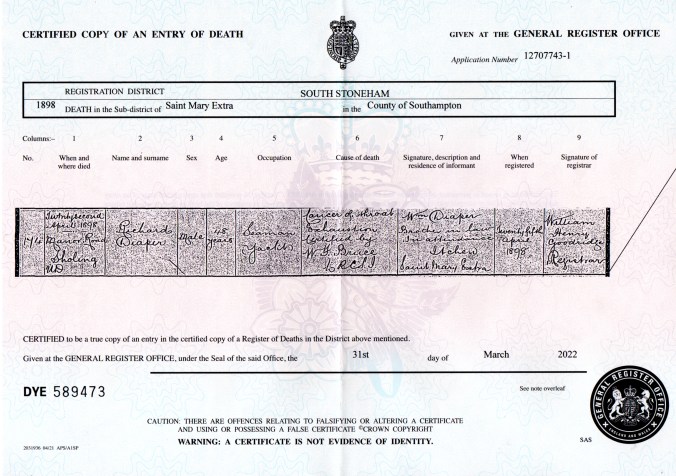 CERTIFIED COPY OF AN ENTRY OF DEATH
GIVEN AT THE GENERAL REGISTER OFFICE
Application Number 12707743-1
REGISTRATION DISTRICT SOUTH STONEHAM
1898 DEATH in the Sub-district of Saint Mary Extra in the County of Southampton
Columns:- 1 2 3 4 5 6 7 8 9
No. When and where died Name and surname Sex Age Occupation Cause of death Signature, description and residence of informant When registered Signature of registrar
174
Twenty second
April 1898
Manor Road
Sholing
UD
Richard
Diaper
Male
48
years
Seaman
Yachts
Cancer of throat
Exhaustion
Certified by
W. G. Bruce
LRCSI
Wm Diaper
Brother in law
In attendance
Itchen
Saint Mary Extra
Twenty fifth
April
1898
William
Henry
Goodridge
Registrar
CERTIFIED to be a true copy of an entry in the certified copy of a Register of Deaths in the District above mentioned.
Given at the GENERAL REGISTER OFFICE, under the Seal of the said Office, the 31st day of March 2022
DYE 589473
See note overleaf
CAUTION: THERE ARE OFFENCES RELATING TO FALSIFYING OR ALTERING A CERTIFICATE
AND USING OR POSSESSING A FALSE CERTIFICATE ©CROWN COPYRIGHT
WARNING: A CERTIFICATE IS NOT EVIDENCE OF IDENTITY.
GENERAL REGISTER OFFICE
ENGLAND AND WALES
SAS